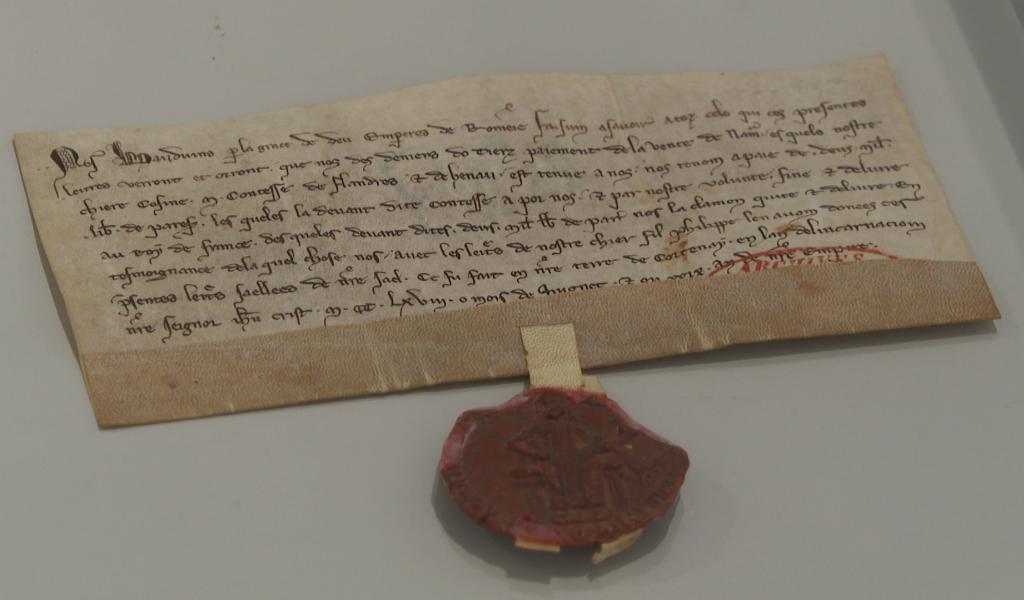 Nos Bauduins p la grace de deu Emperes de Romeie faisum asavoir a toz celz qui ces presentes
leitres verront et orront. que nos des deniers do tierz paiement de la vente de Nam. es quels nostre
chiere Cosine. M. Contesse de Flandres. & de henau. est tenue a nos. nos tenom a paie de. deus. mil.
lib. de paresi. les queles la devant dite contesse a por nos. & par nostre volunte. fine & delivre
au roy de france. des queles devant dites. deus. mil. lib. de par. nos la clamom quite & delivre. En
tesmoignance de la quel chose nos. avec les leitres de nostre chier fil phelippe len avom donees ces
psentes leitres saellees de nre sael. Ce fu fait en nre terre de Cortenay. en lan de lincarnaciom
nre seignor ihu crist. M. CC. LXVIII. o mois de Auguet. & an
ARCHIVES